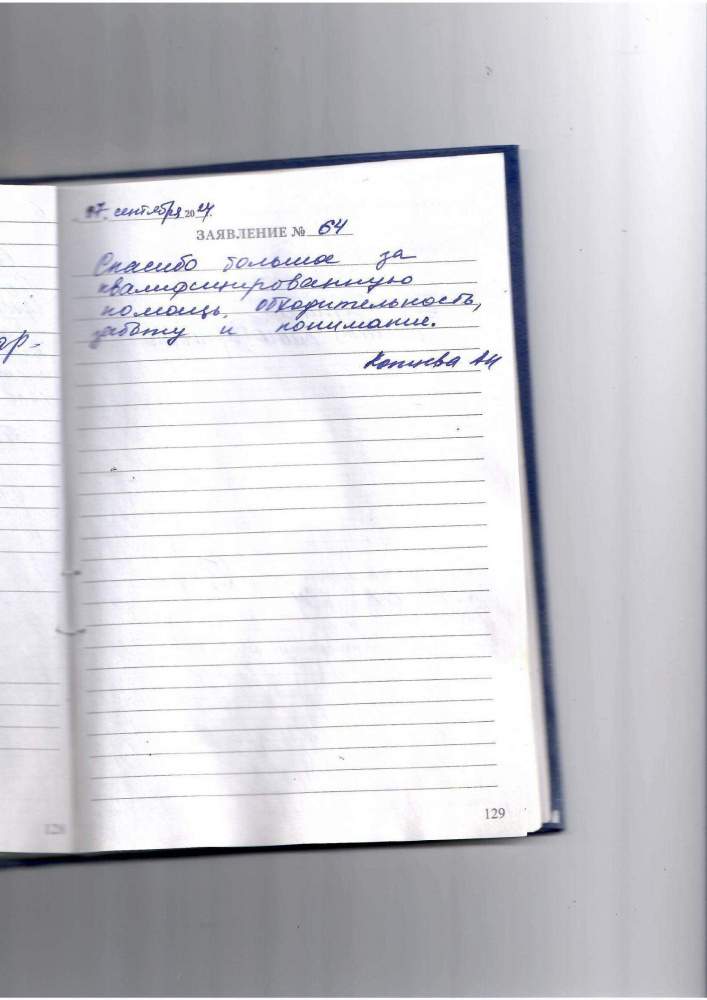 сентября 2024.
ЗАЯВЛЕНИЕ № 64
Спасибо большое за
квалифицированную
помощь, обходительность,
заботу и понимание.
ар-
129
128